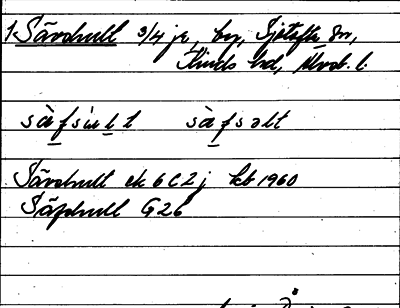 1. Sävshult 3/4 je, by, Tjötefta sn,
Kinds hd, Älvsb. l.
säfsult säfsəlt
Sävshult ek 6C2j kb 1960
Säfshult G26